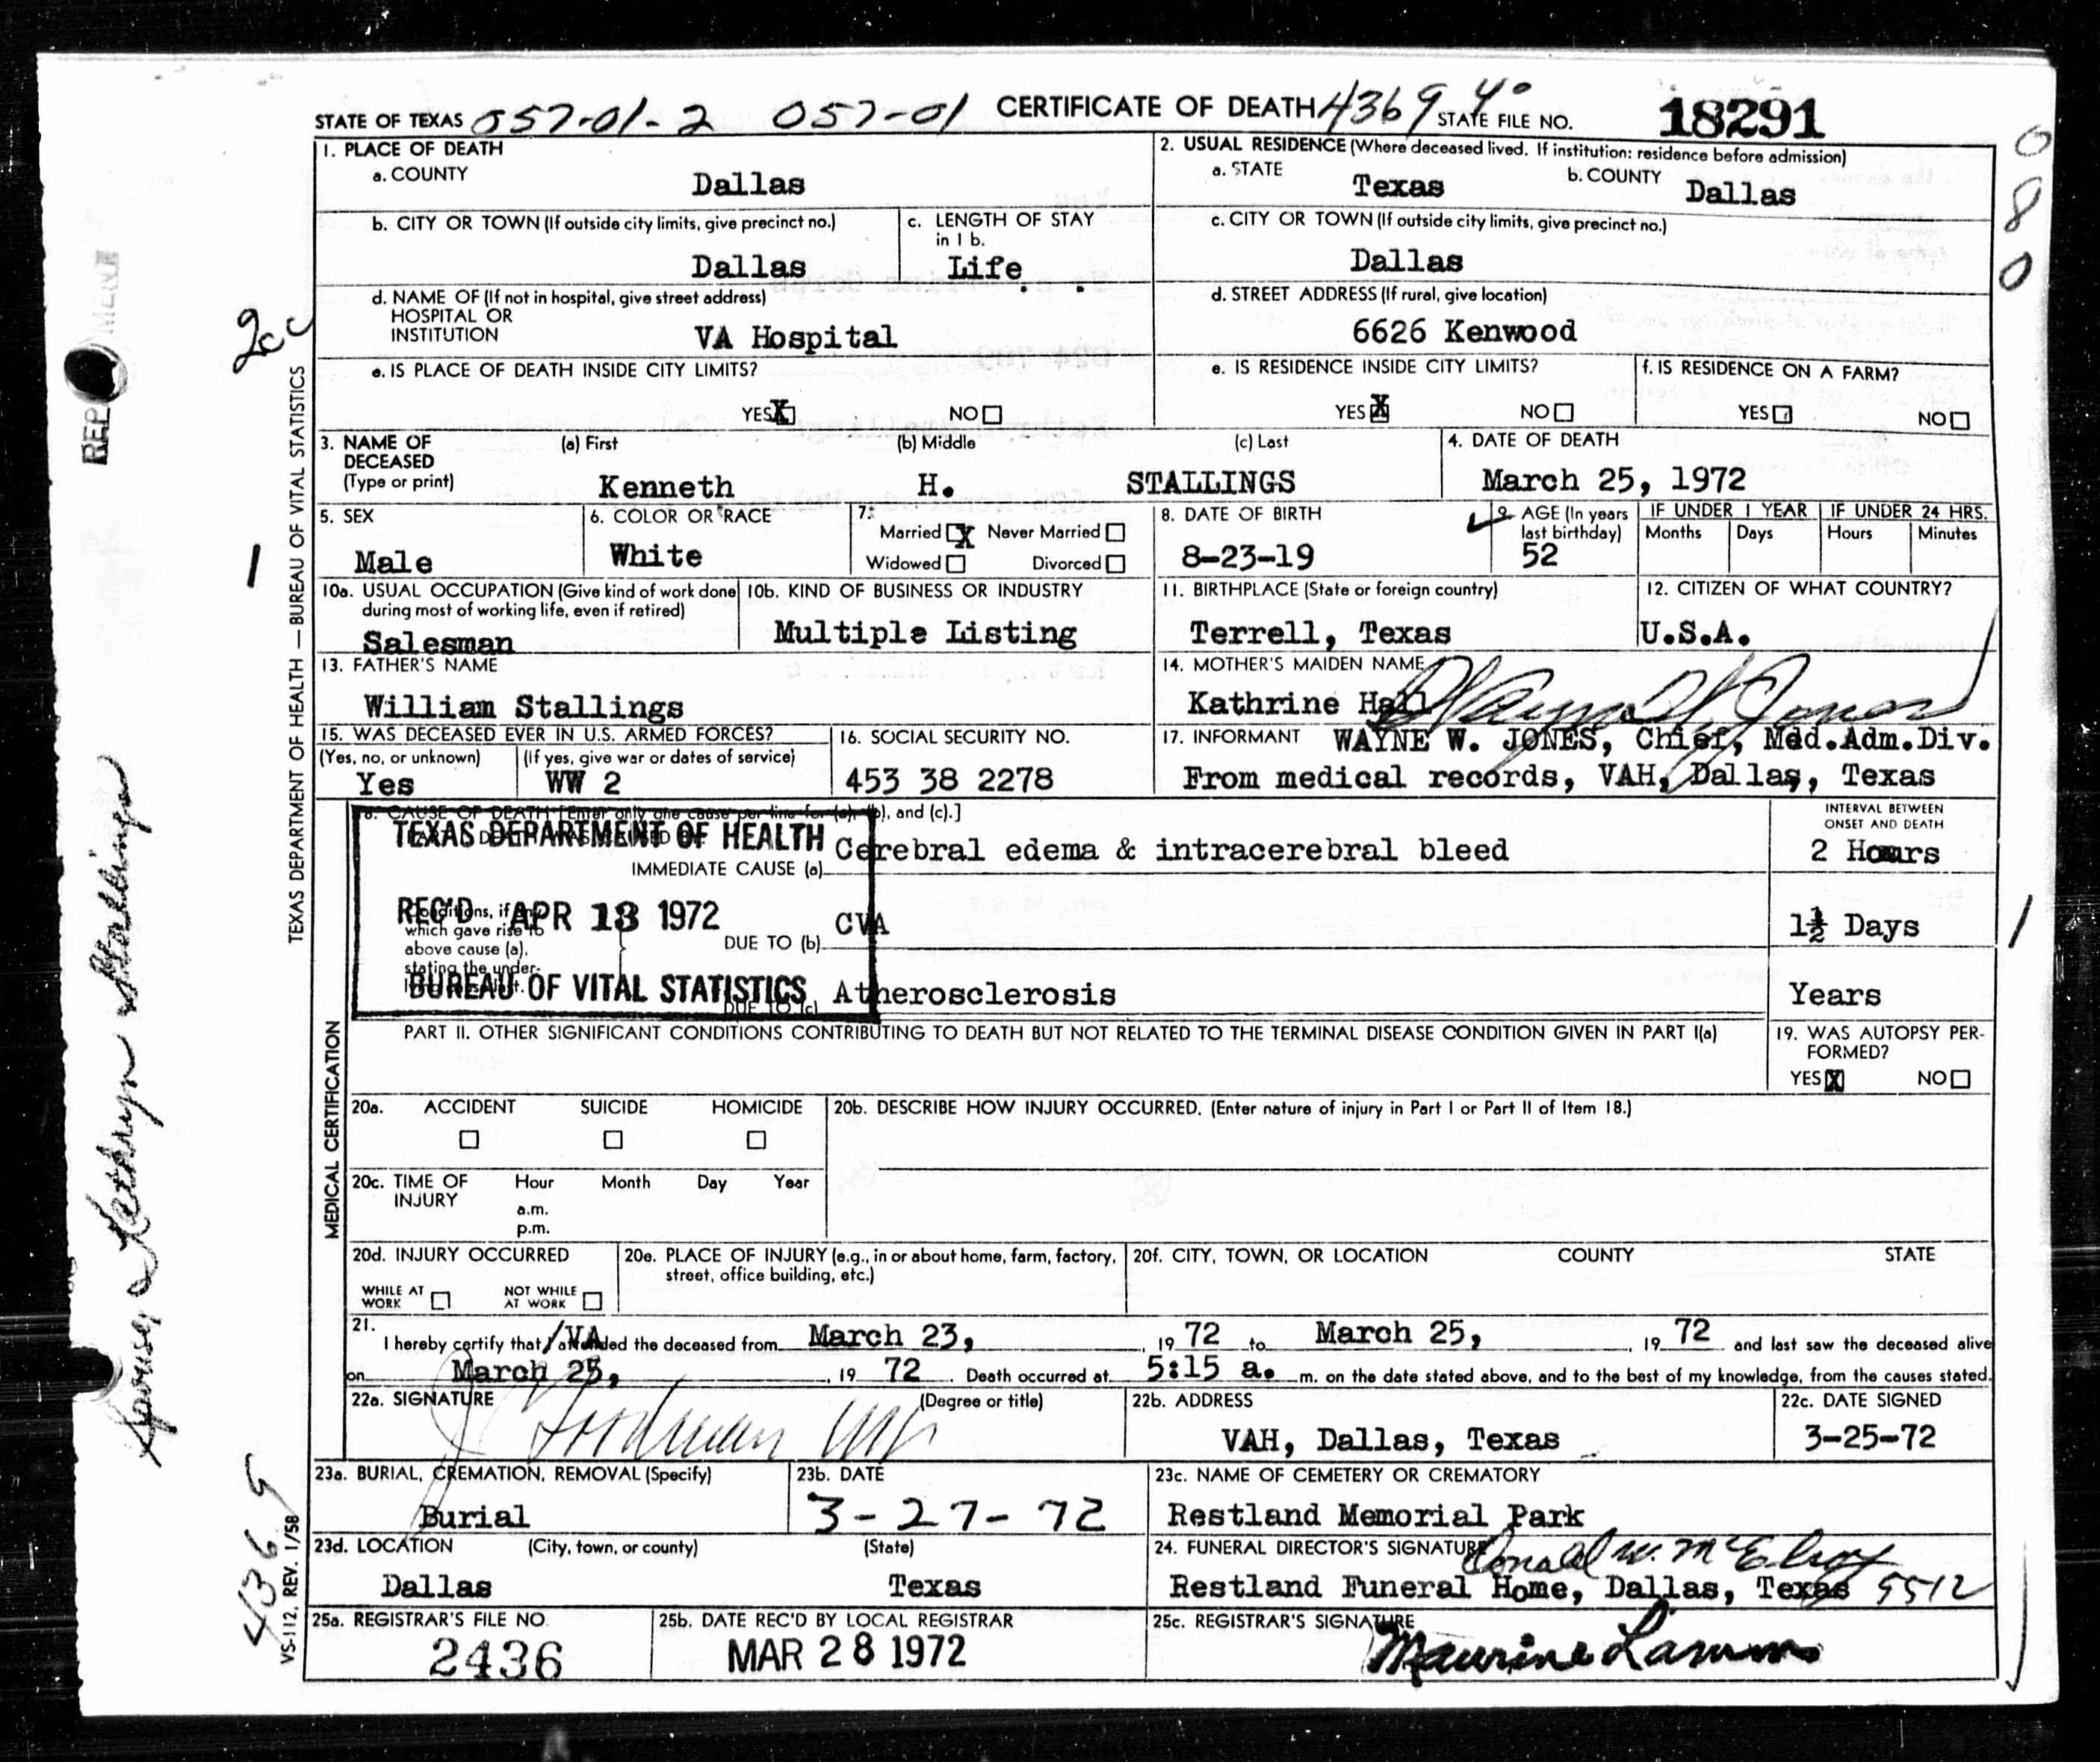 STATE OF TEXAS 057-01-2 057-01 CERTIFICATE OF DEATH 4369 4° STATE FILE NO. 18291
1. PLACE OF DEATH
a. COUNTY Dallas
2. USUAL RESIDENCE (Where deceased lived. If institution: residence before admission)
a. STATE Texas b. COUNTY Dallas
b. CITY OR TOWN (If outside city limits, give precinct no.) Dallas
c. LENGTH OF STAY in 1 b. Life
c. CITY OR TOWN (If outside city limits, give precinct no.) Dallas
d. NAME OF (If not in hospital, give street address)
HOSPITAL OR
INSTITUTION VA Hospital
d. STREET ADDRESS (If rural, give location)
6626 Kenwood
e. IS PLACE OF DEATH INSIDE CITY LIMITS?
YES X NO
e. IS RESIDENCE INSIDE CITY LIMITS?
YES X NO
f. IS RESIDENCE ON A FARM?
YES NO
3. NAME OF DECEASED (Type or print)
(a) First (b) Middle (c) Last
Kenneth H. STALLINGS
4. DATE OF DEATH
March 25, 1972
5. SEX
Male
6. COLOR OR RACE
White
7.
Married X Never Married
Widowed Divorced
8. DATE OF BIRTH
8-23-19
9. AGE (In years last birthday)
52
IF UNDER 1 YEAR
Months Days
IF UNDER 24 HRS.
Hours Minutes
10a. USUAL OCCUPATION (Give kind of work done
during most of working life, even if retired)
Salesman
10b. KIND OF BUSINESS OR INDUSTRY
Multiple Listing
11. BIRTHPLACE (State or foreign country)
Terrell, Texas
12. CITIZEN OF WHAT COUNTRY?
U.S.A.
13. FATHER'S NAME
William Stallings
14. MOTHER'S MAIDEN NAME
Kathrine Hall
Wayne W. Jones
15. WAS DECEASED EVER IN U.S. ARMED FORCES?
(Yes, no, or unknown) (If yes, give war or dates of service)
Yes WW 2
16. SOCIAL SECURITY NO.
453 38 2278
17. INFORMANT WAYNE W. JONES, Chief, Med.Adm.Div.
From medical records, VAH, Dallas, Texas
18. CAUSE OF DEATH [Enter only one cause per line for (a), (b), and (c).]
TEXAS DEPARTMENT OF HEALTH
REC'D APR 13 1972
BUREAU OF VITAL STATISTICS
INTERVAL BETWEEN
ONSET AND DEATH
IMMEDIATE CAUSE (a) Cerebral edema & intracerebral bleed 2 Hours
Conditions, if any
which gave rise to
above cause (a),
stating the under-
DUE TO (b) CVA 1½ Days
DUE TO (c) Atherosclerosis Years
PART II. OTHER SIGNIFICANT CONDITIONS CONTRIBUTING TO DEATH BUT NOT RELATED TO THE TERMINAL DISEASE CONDITION GIVEN IN PART I(a)
19. WAS AUTOPSY PER-
FORMED?
YES X NO
20a. ACCIDENT SUICIDE HOMICIDE
20b. DESCRIBE HOW INJURY OCCURRED. (Enter nature of injury in Part I or Part II of Item 18.)
20c. TIME OF INJURY Hour Month Day Year
a.m.
p.m.
20d. INJURY OCCURRED
WHILE AT WORK NOT WHILE AT WORK
20e. PLACE OF INJURY (e.g., in or about home, farm, factory,
street, office building, etc.)
20f. CITY, TOWN, OR LOCATION COUNTY STATE
21.
I hereby certify that /VA attended the deceased from March 23, 19 72 to March 25, 19 72 and last saw the deceased alive
on March 25, 19 72 Death occurred at 5:15 a. m. on the date stated above, and to the best of my knowledge, from the causes stated.
22a. SIGNATURE (Degree or title)
22b. ADDRESS
VAH, Dallas, Texas
22c. DATE SIGNED
3-25-72
23a. BURIAL, CREMATION, REMOVAL (Specify)
Burial
23b. DATE
3-27-72
23c. NAME OF CEMETERY OR CREMATORY
Restland Memorial Park
23d. LOCATION (City, town, or county) (State)
Dallas Texas
24. FUNERAL DIRECTOR'S SIGNATURE Donald W. McElroy
Restland Funeral Home, Dallas, Texas 5512
25a. REGISTRAR'S FILE NO.
2436
25b. DATE REC'D BY LOCAL REGISTRAR
MAR 28 1972
25c. REGISTRAR'S SIGNATURE
Maurine Lamm
TEXAS DEPARTMENT OF HEALTH — BUREAU OF VITAL STATISTICS
MEDICAL CERTIFICATION
VS-112, REV. 1/58
2cc
1
Spouse Kathryn Stallings
4369
0
8
0
1